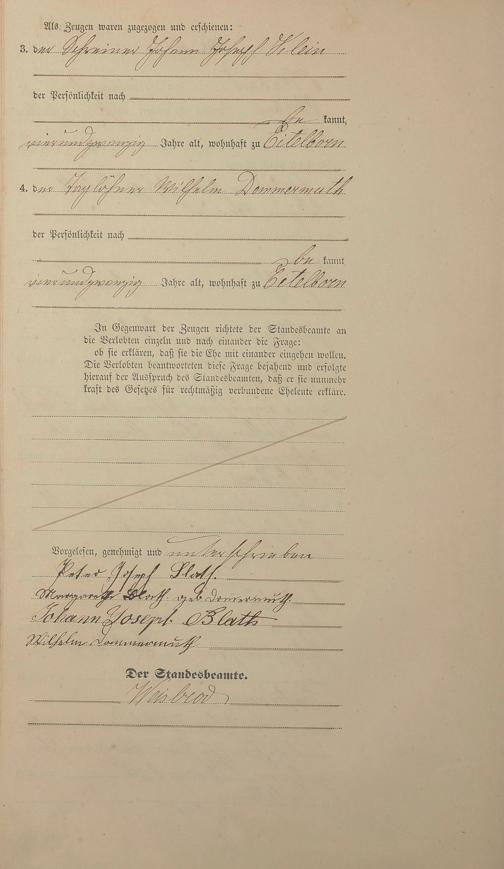 Als Zeugen waren zugezogen und erschienen:
3. der Schreiner Johann Joseph
der Persönlichkeit nach
be kannt,
vierundzwanzig Jahre alt, wohnhaft zu Eitelborn
4. der Taglöhner Wilhelm Dommermuth
der Persönlichkeit nach
be kannt
vierundzwanzig Jahre alt, wohnhaft zu Eitelborn
In Gegenwart der Zeugen richtete der Standesbeamte an
die Verlobten einzeln und nach einander die Frage:
ob sie erklären, daß sie die Ehe mit einander eingehen wollen.
Die Verlobten beantworteten diese Frage bejahend und erfolgte
hierauf der Ausspruch des Standesbeamten, daß er sie nunmehr
kraft des Gesetzes für rechtmäßig verbundene Eheleute erkläre.
Vorgelesen, genehmigt und unterschrieben
Peter Joseph Blath.
Margareth Blath geb Dommermuth
Johann Joseph Blath
Wilhelm Dommermuth
Der Standesbeamte.
Weisbrod